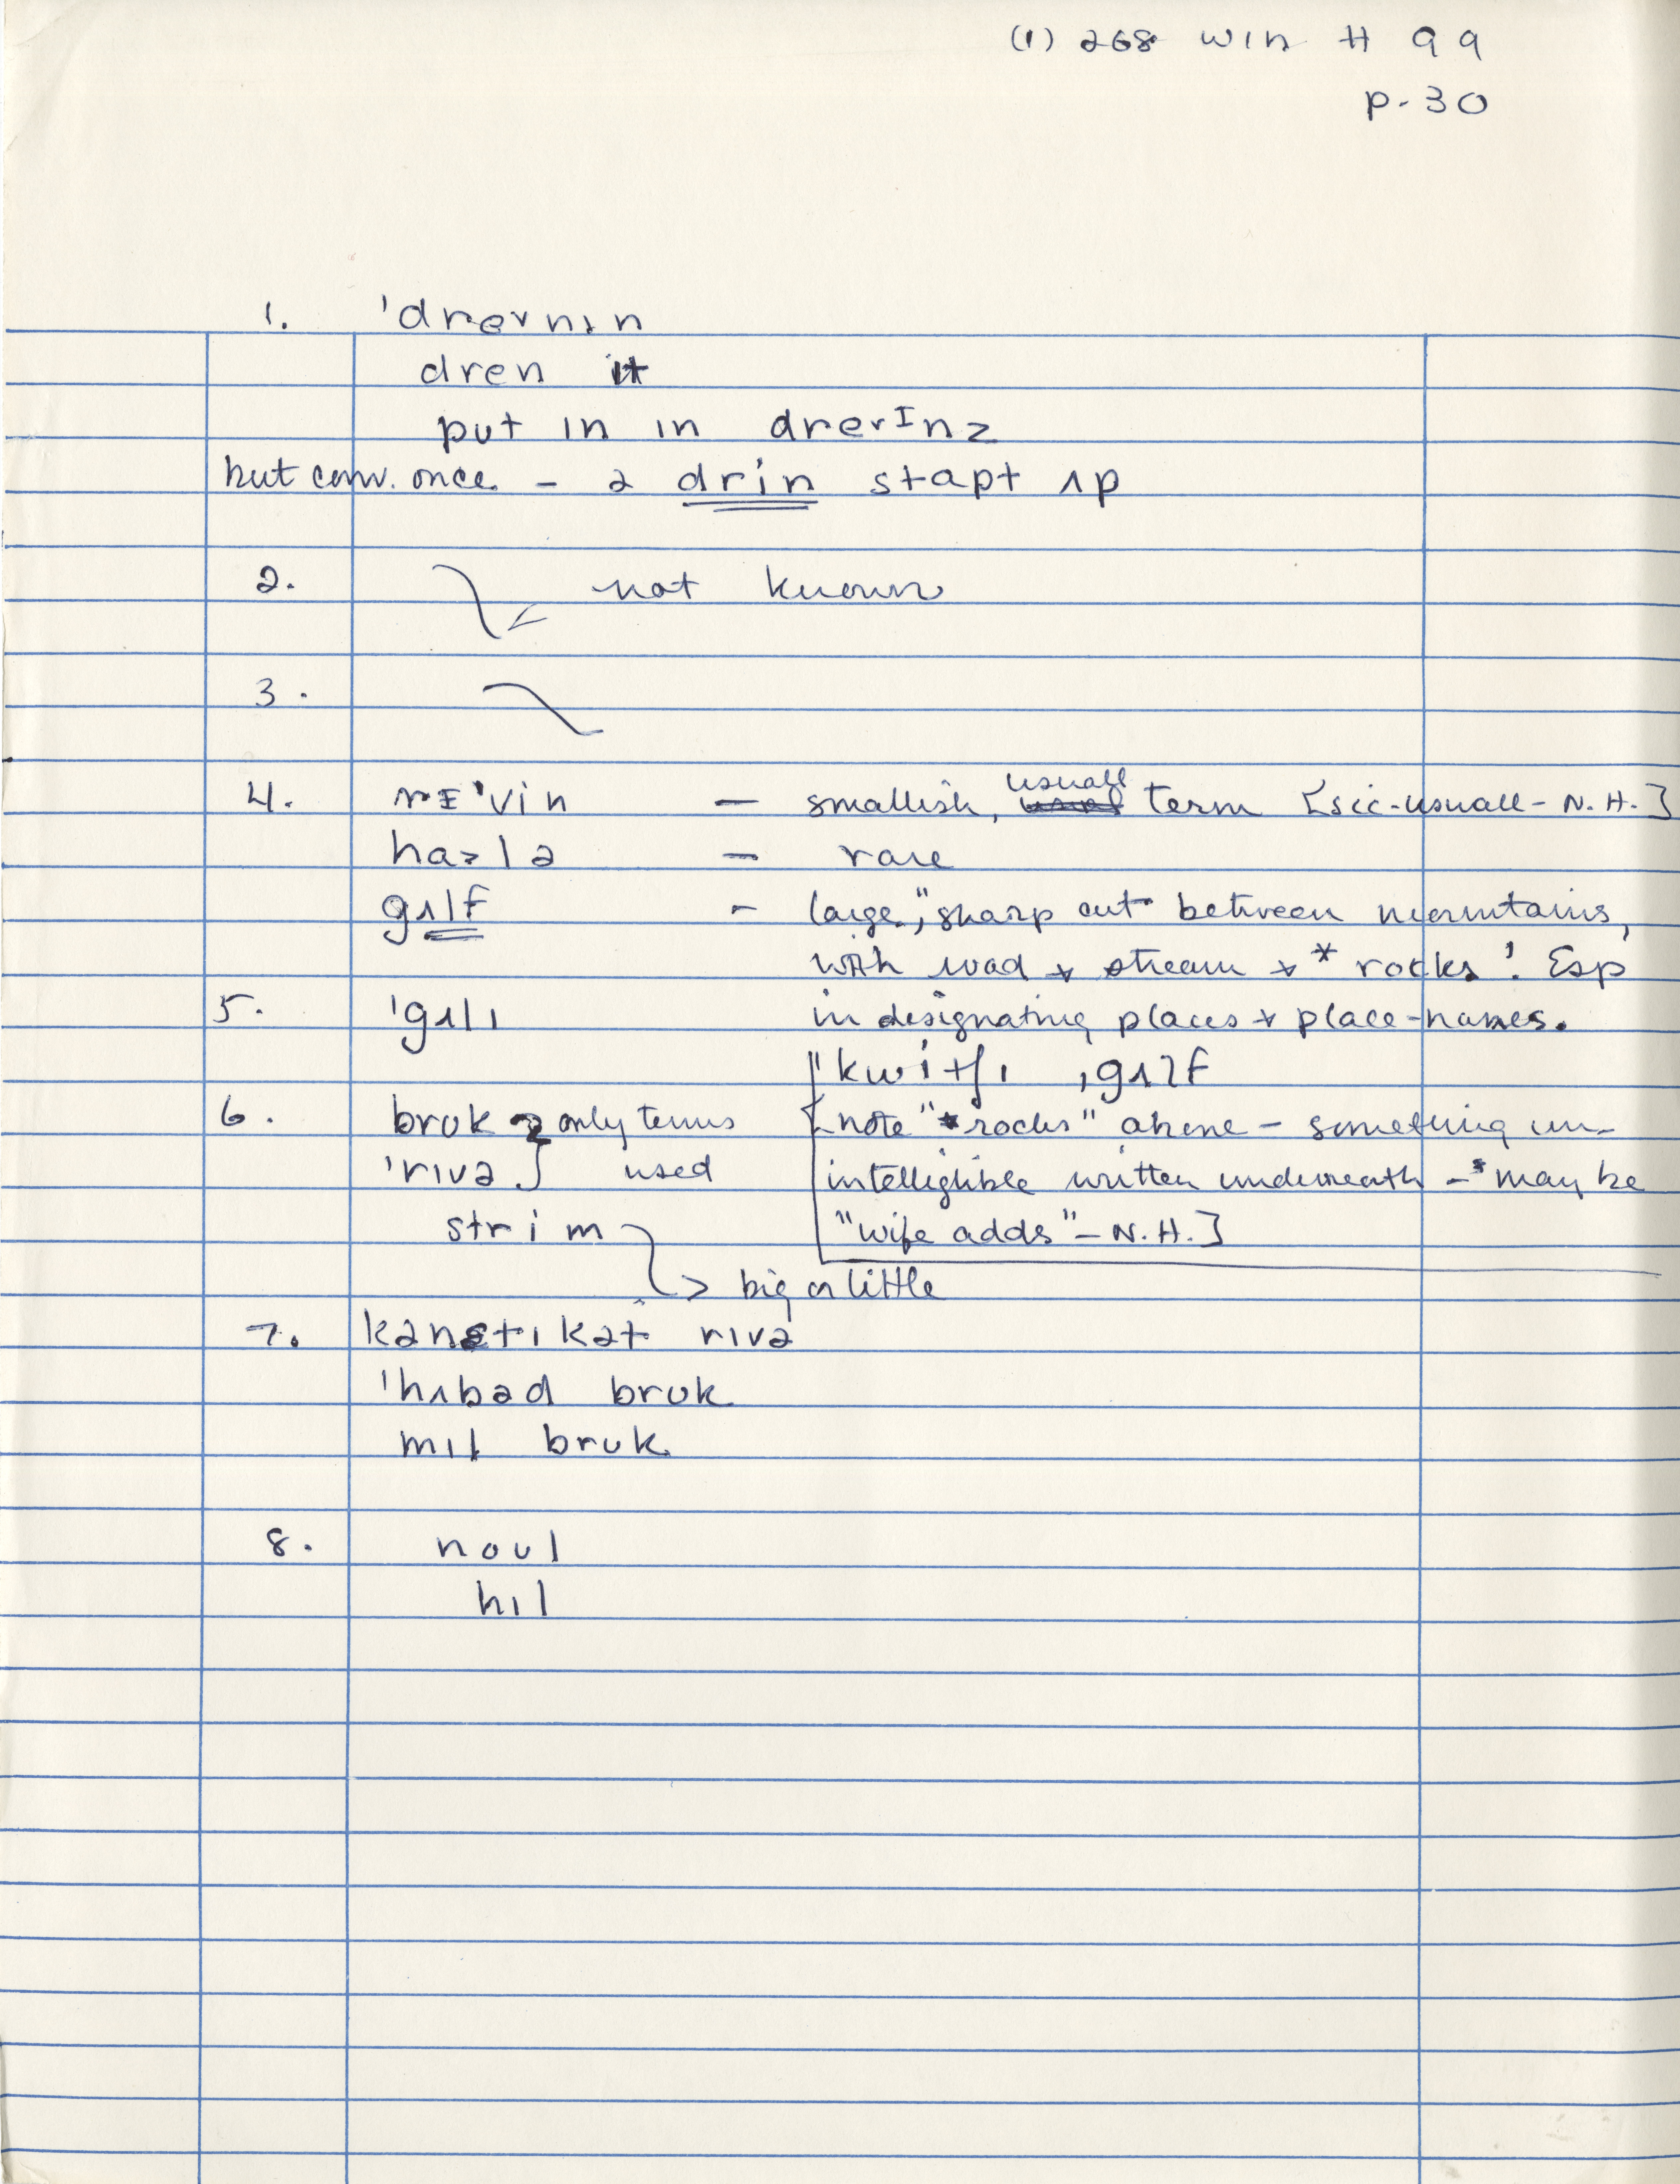 (1) 268 WIN # 99
p. 30
1. 'dreɪnɪn
dren it
put ɪn ɪn dreɪɪnz
but conv. once – ə drin stapt ʌp
2. not known
3.
4. rɛ'vin – smallish, usuall term [sic-usuall-N.H.]
halə – rare
gʌlf – large, "sharp cut between mountains,
with road + stream + * rocks'. Esp
5. 'gʌlɪ in designating places + place-names.
"kwitʃɪ ˌgʌlf
6. brʊk } only terms [note "*rocks" above – something un-
'rɪvə } used intelligible written underneath – may be
strim "wife adds" – N.H.]
> big or little
7. kənɛtɪkət rɪvə
'hʌbəd brʊk
mɪl brʊk
8. noʊl
hɪl